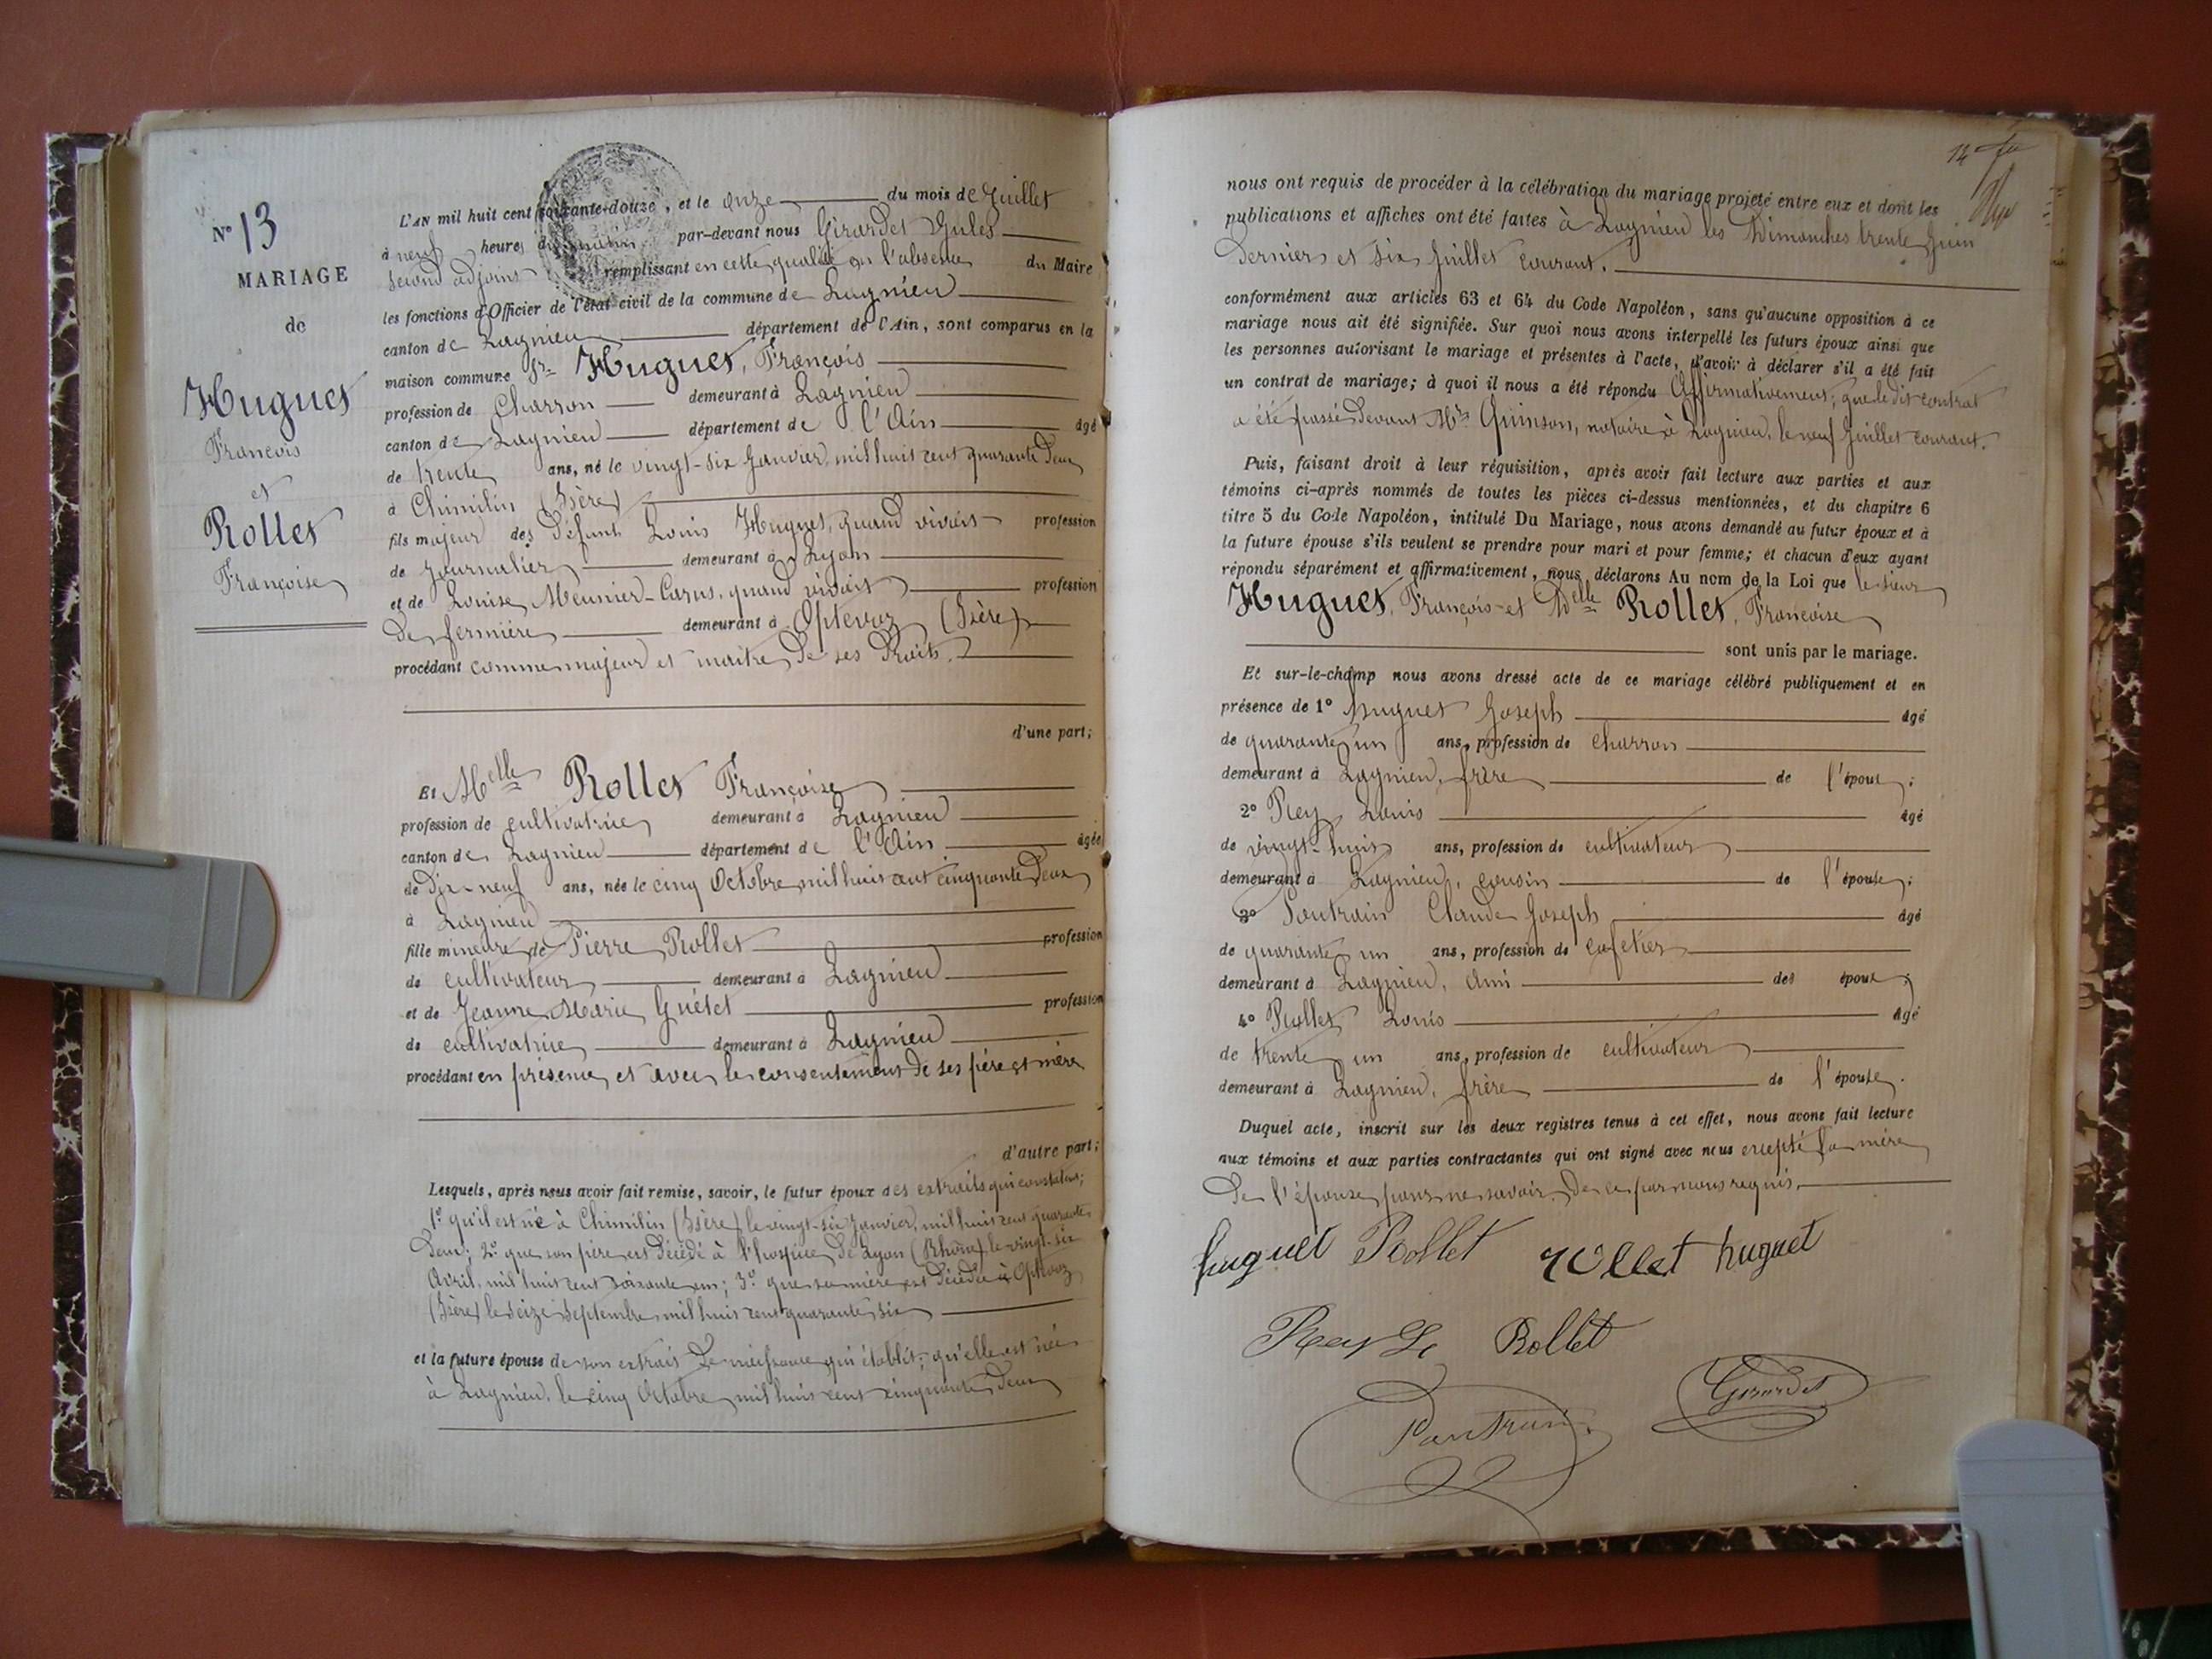 N° 13
MARIAGE
de
Huguet
François
et
Rollet
Françoise
L'AN mil huit cent soixante-douze, et le onze du mois de Juillet
à neuf heures du matin par-devant nous Girardet Jules
second adjoint remplissant en cette qualité en l'absence du Maire
les fonctions d'Officier de l'état civil de la commune de Lagnieu
canton de Lagnieu département de l'Ain, sont comparus en la
maison commune Sr Huguet, François
profession de Charron demeurant à Lagnieu
canton de Lagnieu département de l'Ain âgé
de trente ans, né le vingt-six Janvier, mil huit cent quarante deux
à Chimilin (Isère)
fils majeur des défunts Louis Huguet, quand vivait profession
de journalier demeurant à Lyon
et de Louise Meunier-Carus, quand vivait profession
de fermière demeurant à Optevoz (Isère)
procédant comme majeur et maître de ses droits.
d'une part;
Et Melle Rollet Françoise
profession de cultivatrice demeurant à Lagnieu
canton de Lagnieu département de l'Ain âgée
de Dix-neuf ans, née le cinq Octobre mil huit cent cinquante deux
à Lagnieu
fille mineure de Pierre Rollet profession
de cultivateur demeurant à Lagnieu
et de Jeanne Marie Guétet profession
de cultivatrice demeurant à Lagnieu
procédant en présence et avec le consentement de ses père et mère
d'autre part;
Lesquels, après nous avoir fait remise, savoir, le futur époux des extraits qui constatent;
1° qu'il est né à Chimilin (Isère) le vingt-six Janvier, mil huit cent quarante
deux; 2° que son père est décédé à l'hospice de Lyon (Rhône) le vingt-six
Avril, mil huit cent soixante un; 3° que sa mère est décédée à Optevoz
(Isère) le seize Septembre mil huit cent quarante six
et la future épouse de son extrait de naissance qui établit; qu'elle est née
à Lagnieu, le cinq Octobre mil huit cent cinquante deux
14
nous ont requis de procéder à la célébration du mariage projeté entre eux et dont les
publications et affiches ont été faites à Lagnieu les Dimanches trente Juin
dernier et six Juillet courant.
conformément aux articles 63 et 64 du Code Napoléon, sans qu'aucune opposition à ce
mariage nous ait été signifiée. Sur quoi nous avons interpellé les futurs époux ainsi que
les personnes autorisant le mariage et présentes à l'acte, d'avoir à déclarer s'il a été fait
un contrat de mariage; à quoi il nous a été répondu Affirmativement, que le dit contrat
a été passé devant Me Quinson, notaire à Lagnieu, le neuf Juillet courant.
Puis, faisant droit à leur réquisition, après avoir fait lecture aux parties et aux
témoins ci-après nommés de toutes les pièces ci-dessus mentionnées, et du chapitre 6
titre 5 du Code Napoléon, intitulé Du Mariage, nous avons demandé au futur époux et à
la future épouse s'ils veulent se prendre pour mari et pour femme; et chacun d'eux ayant
répondu séparément et affirmativement, nous déclarons Au nom de la Loi que le sieur
Huguet, François et Delle Rollet, Françoise
sont unis par le mariage.
Et sur-le-champ nous avons dressé acte de ce mariage célébré publiquement et en
présence de 1° Huguet Joseph âgé
de quarante un ans, profession de charron
demeurant à Lagnieu, frère de l'époux;
2° Rey Louis âgé
de vingt-huit ans, profession de cultivateur
demeurant à Lagnieu, cousin de l'épouse;
3° Pautrain Claude Joseph âgé
de quarante un ans, profession de cafetier
demeurant à Lagnieu, ami des époux;
4° Rollet Louis âgé
de trente un ans, profession de cultivateur
demeurant à Lagnieu, frère de l'épouse.
Duquel acte, inscrit sur les deux registres tenus à cet effet, nous avons fait lecture
aux témoins et aux parties contractantes qui ont signé avec nous excepté la mère
de l'épouse pour ne savoir de ce par nous requis.
huguet Rollet rollet huguet
Rey Ls Rollet
Girardet
Pautrain